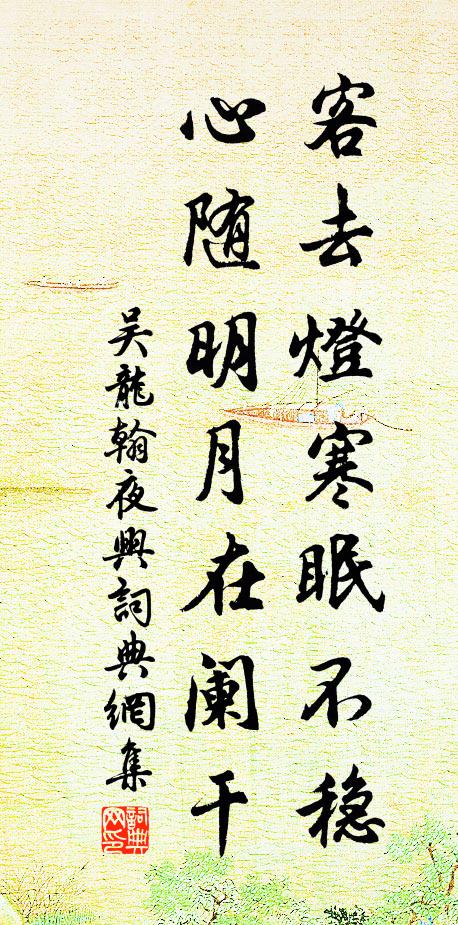 客去燈寒眠不稳
心随明月在阑干
吴龍翰夜興詞典網集
詞典网印